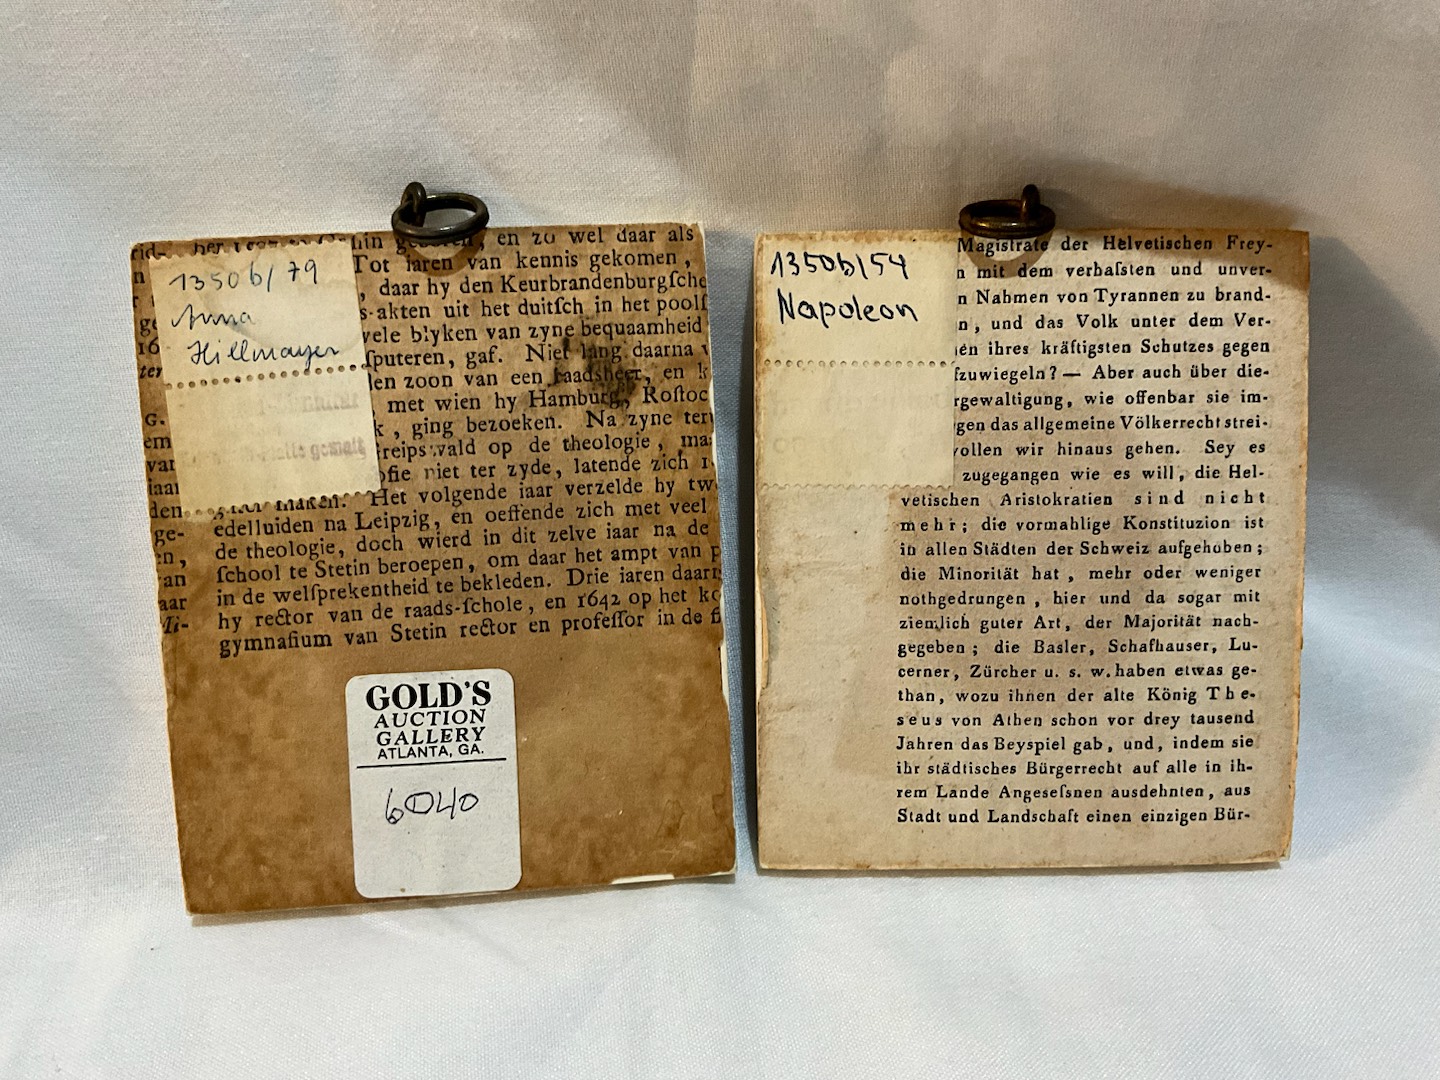 13506/79
Anna
Hillmayer
gemalt
en zo wel daar als
Tot iaren van kennis gekomen,
, daar hy den Keurbrandenburgſche
s-akten uit het duitſch in het poolſ
vele blyken van zyne bequaamheid
ſputeren, gaf. Niet lang daarna
len zoon van een raadsheer, en k
met wien hy Hamburg, Roſtoc
k, ging bezoeken. Na zyne ter
reipswald op de theologie, ma
ofie niet ter zyde, latende zich
maken. Het volgende iaar verzelde hy tw
edelluiden na Leipzig, en oeffende zich met veel
de theologie, doch wierd in dit zelve iaar na de
ſchool te Stetin beroepen, om daar het ampt van p
in de welſprekentheid te bekleden. Drie iaren daarn
hy rector van de raads-ſchole, en 1642 op het ko
gymnaſium van Stetin rector en profeſſor in de
GOLD'S
AUCTION
GALLERY
ATLANTA, GA.
6040
13506/54
Napoleon
Magistrate der Helvetischen Frey-
n mit dem verhaſsten und unver-
n Nahmen von Tyrannen zu brand-
n, und das Volk unter dem Ver-
en ihres kräftigsten Schutzes gegen
fzuwiegeln? — Aber auch über die-
rgewaltigung, wie offenbar sie im-
gen das allgemeine Völkerrecht strei-
vollen wir hinaus gehen. Sey es
zugegangen wie es will, die Hel-
vetischen Aristokratien sind nicht
mehr; die vormahlige Konstituzion ist
in allen Städten der Schweiz aufgehoben;
die Minorität hat, mehr oder weniger
nothgedrungen, hier und da sogar mit
ziemlich guter Art, der Majorität nach-
gegeben; die Basler, Schafhauser, Lu-
cerner, Zürcher u. s. w. haben etwas ge-
than, wozu ihnen der alte König The-
seus von Athen schon vor drey tausend
Jahren das Beyspiel gab, und, indem sie
ihr städtisches Bürgerrecht auf alle in ih-
rem Lande Angeseſsnen ausdehnten, aus
Stadt und Landschaft einen einzigen Bür-